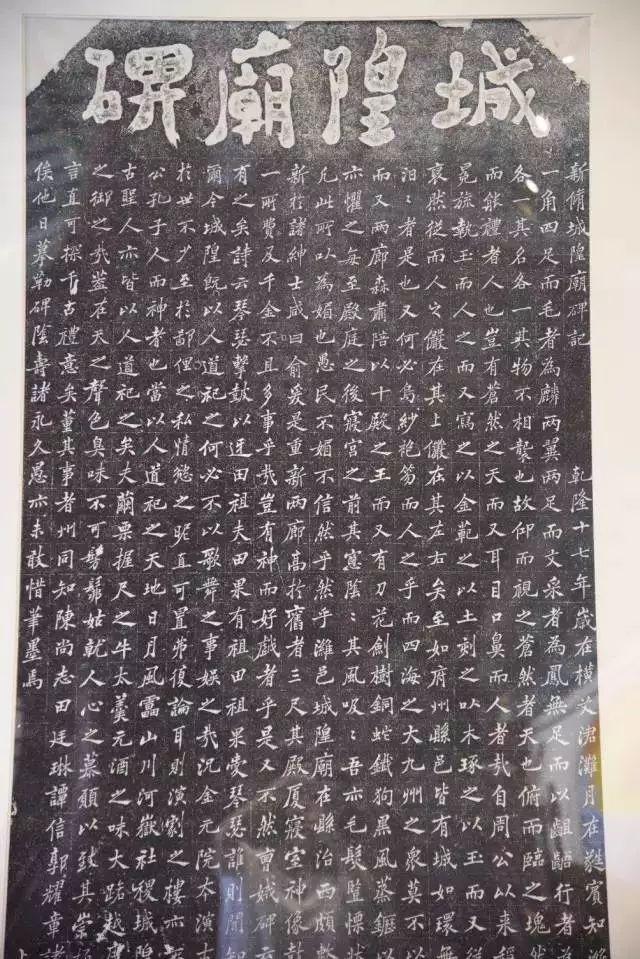 城隍廟碑
新脩城隍廟碑記　乾隆十七年歲在橫艾涒灘月在蕤賓知濰
一角四足而毛者為麟兩翼兩足而文采者為鳳無足而以齟齬行者為
各一其名各一其物不相襲也故仰而視之蒼然者天也俯而臨之塊然
而能禮者人也豈有蒼然之天而又耳目口鼻而人者哉自周公以来稱
冕旒執玉而人之而又寫之以金範之以土刻之以木琢之以玉而又從
裒然從而人之儼在其上儼在其左右矣至如府州縣邑皆有城如環無
汨〻者是也又何必烏紗袍笏而人之乎而四海之大九州之衆莫不以
而又兩廊森肅陪以十殿之王而又有刀花劍樹銅蛇鐵狗黑風蒸鑊以
亦懼之每至殿庭之後寢宮之前其窻陰〻其風吸〻吾亦毛髮豎慄狀
凡此所以為媚也愚民不媚不信然乎然乎濰邑城隍廟在縣治西頗整
新於諸紳士咸曰俞爰是重新兩廊高於舊者三尺其殿厦寢室神像鼓
一所費及千金不且多事乎哉豈有神而好戲者乎是又不然曹娥碑云
有之矣詩云琴瑟擊鼓以迓田祖夫田果有祖田祖果愛琴瑟誰則聞知
爾今城隍既以人道祀之何必不以歌舞之事娛之哉況金元院本演古
於世不少至於鄙俚之私情慾之昵直可置弗復論耳則演劇之樓亦
公孔子人而神者也當以人道祀之天地日月風雷山川河嶽社稷城隍
古聖人亦皆以人道祀之矣夫繭栗握尺之牛太羹元酒之味大路越
之御之哉蓋在天之聲色臭味不可髣髴姑就人心之慕願以致其崇極
言直可探千古禮意矣董其事者州同知陳尚志田廷琳譚信郭耀章諸
侯他日摹勒碑陰壽諸永久愚亦未敢惜筆墨焉